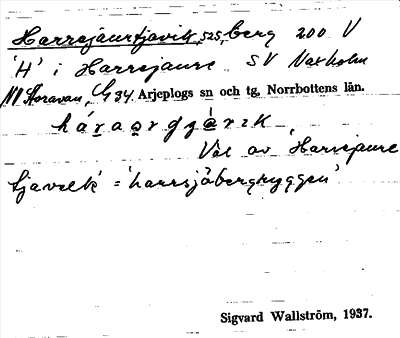 Harrejaurtjavilk, 525, berg 200 V
'H' i Harrejaure SV Naxholm
M Storavan, G 34 Arjeplogs sn och tg, Norrbottens län.
Val av Harrejaure
tjavelk = 'harrsjöbergryggen'
Sigvard Wallström, 1937.